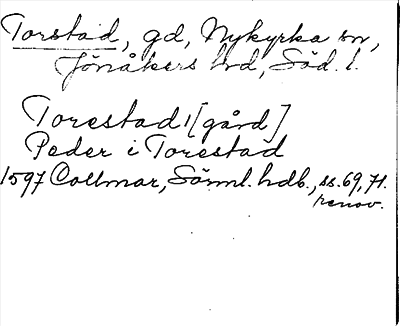 Torstad, gd, Nykyrka sn,
Jönåkers hd, Söd. l.
Torestad 1 [gård]
Peder i Torestad
1597 Collmar, Sörml. hdb., ss. 69, 71.
renov.